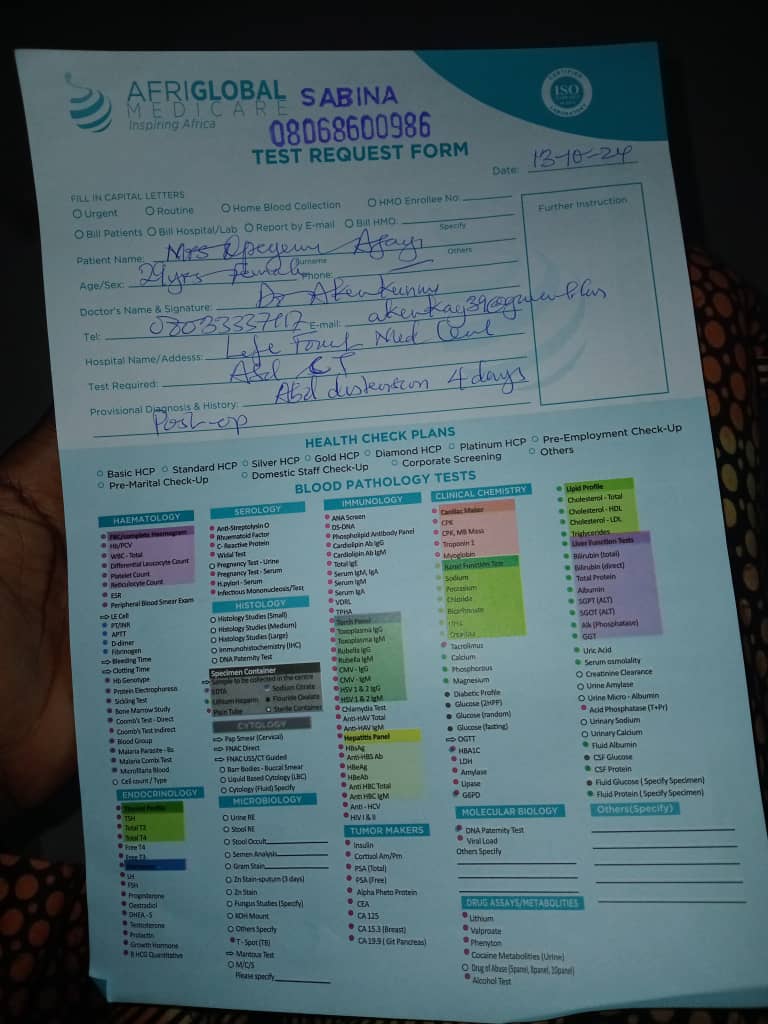 AFRIGLOBAL
MEDICARE
Inspiring Africa
SABINA
08068600986
CERTIFIED
ISO
LABORATORY
TEST REQUEST FORM
Date: 13-10-24
FILL IN CAPITAL LETTERS
Urgent Routine Home Blood Collection HMO Enrollee No:
Bill Patients Bill Hospital/Lab Report by E-mail Bill HMO: Specify
Further Instruction
Patient Name: Mrs Opeyemi Ajayi
Surname Others
Age/Sex: 29yrs female Phone:
Doctor's Name & Signature: Dr Akenkunmy
Tel: E-mail:
Hospital Name/Adddesss: Life Med
Test Required: Abd CT
Provisional Diagnosis & History: Abd distension 4 days
Post-op
HEALTH CHECK PLANS
Basic HCP Standard HCP Silver HCP Gold HCP Diamond HCP Platinum HCP Pre-Employment Check-Up
Pre-Marital Check-Up Domestic Staff Check-Up Corporate Screening Others
BLOOD PATHOLOGY TESTS
HAEMATOLOGY
FBC/complete Haemogram
Hb/PCV
WBC - Total
Differential Leucocyte Count
Platelet Count
Reticulocyte Count
ESR
Peripheral Blood Smear Exam
LE Cell
PT/INR
APTT
D-dimer
Fibrinogen
Bleeding Time
Clotting Time
Hb Genotype
Protein Electrophoresis
Sickling Test
Bone Marrow Study
Coomb's Test - Direct
Coomb's Test Indirect
Blood Group
Malaria Parasite - Bs
Malaria Combi Test
Microfilaria Blood
Cell count / Type
ENDOCRINOLOGY
Thyroid Profile
TSH
Total T3
Total T4
Free T4
Free T3
LH
FSH
Progesterone
Oestradiol
DHEA - S
Testosterone
Prolactin
Growth Hormone
B HCG Quantitative
SEROLOGY
Anti-Streptolysin O
Rheumatoid Factor
C- Reactive Protein
Widal Test
Pregnancy Test - Urine
Pregnancy Test - Serum
H.pylori - Serum
Infectious Mononucleosis/Test
HISTOLOGY
Histology Studies (Small)
Histology Studies (Medium)
Histology Studies (Large)
Immunohistochemistry (IHC)
DNA Paternity Test
Specimen Container
Sample to be collected in the centre
EDTA Sodium Citrate
Lithium Heparin Flouride Oxalate
Plain Tube Sterile Container
CYTOLOGY
Pap Smear (Cervical)
FNAC Direct
FNAC USS/CT Guided
Barr Bodies - Buccal Smear
Liquid Based Cytology (LBC)
Cytology (Fluid) Specify
MICROBIOLOGY
Urine RE
Stool RE
Stool Occult
Semen Analysis
Gram Stain
Zn Stain-sputum (3 days)
Zn Stain
Fungus Studies (Specify)
KOH Mount
Others Specify
T - Spot (TB)
Mantoux Test
M/C/S
Please specify
IMMUNOLOGY
ANA Screen
DS-DNA
Phospholipid Antibody Panel
Cardiolipin Ab IgG
Cardiolipin Ab IgM
Total IgE
Serum IgM, IgA
Serum IgM
Serum IgA
VDRL
TPHA
Torch Panel
Toxoplasma IgG
Toxoplasma IgM
Rubella IgG
Rubella IgM
CMV - IgG
CMV - IgM
HSV 1 & 2 IgG
HSV 1 & 2 IgM
Chlamydia Test
Anti-HAV Total
Anti-HAV IgM
Hepatitis Panel
HBsAg
Anti-HBS Ab
HBeAg
HBeAb
Anti HBC Total
Anti HBC IgM
Anti - HCV
HIV I & II
TUMOR MAKERS
Insulin
Cortisol Am/Pm
PSA (Total)
PSA (Free)
Alpha Pheto Protein
CEA
CA 125
CA 15.3 (Breast)
CA 19.9 ( Git Pancreas)
CLINICAL CHEMISTRY
Cardiac Maker
CPK
CPK, MB Mass
Troponin 1
Myoglobin
Renal Function Test
Sodium
Potassium
Chloride
Bicarbonate
Urea
Creatine
Tacrolimus
Calcium
Phosphorous
Magnesium
Diabetic Profile
Glucose (2HPP)
Glucose (random)
Glucose (fasting)
OGTT
HBA1C
LDH
Amylase
Lipase
G6PD
MOLECULAR BIOLOGY
DNA Paternity Test
Viral Load
Others Specify
DRUG ASSAYS/METABOLITIES
Lithium
Valproate
Phenyton
Cocaine Metabolities (Urine)
Drug of Abuse (5panel, 8panel, 10panel)
Alcohol Test
Lipid Profile
Cholesterol - Total
Cholesterol - HDL
Cholesterol - LDL
Triglycerides
Liver Function Tests
Bilirubin (total)
Bilirubin (direct)
Total Protein
Albumin
SGPT (ALT)
SGOT (ALT)
Alk (Phosphatase)
GGT
Uric Acid
Serum osmolality
Creatinine Clearance
Urine Amylase
Urine Micro - Albumin
Acid Phosphatase (T+Pr)
Urinary Sodium
Urinary Calcium
Fluid Albumin
CSF Glucose
CSF Protein
Fluid Glucose ( Specify Specimen)
Fluid Protein ( Specify Specimen)
Others(Specify)